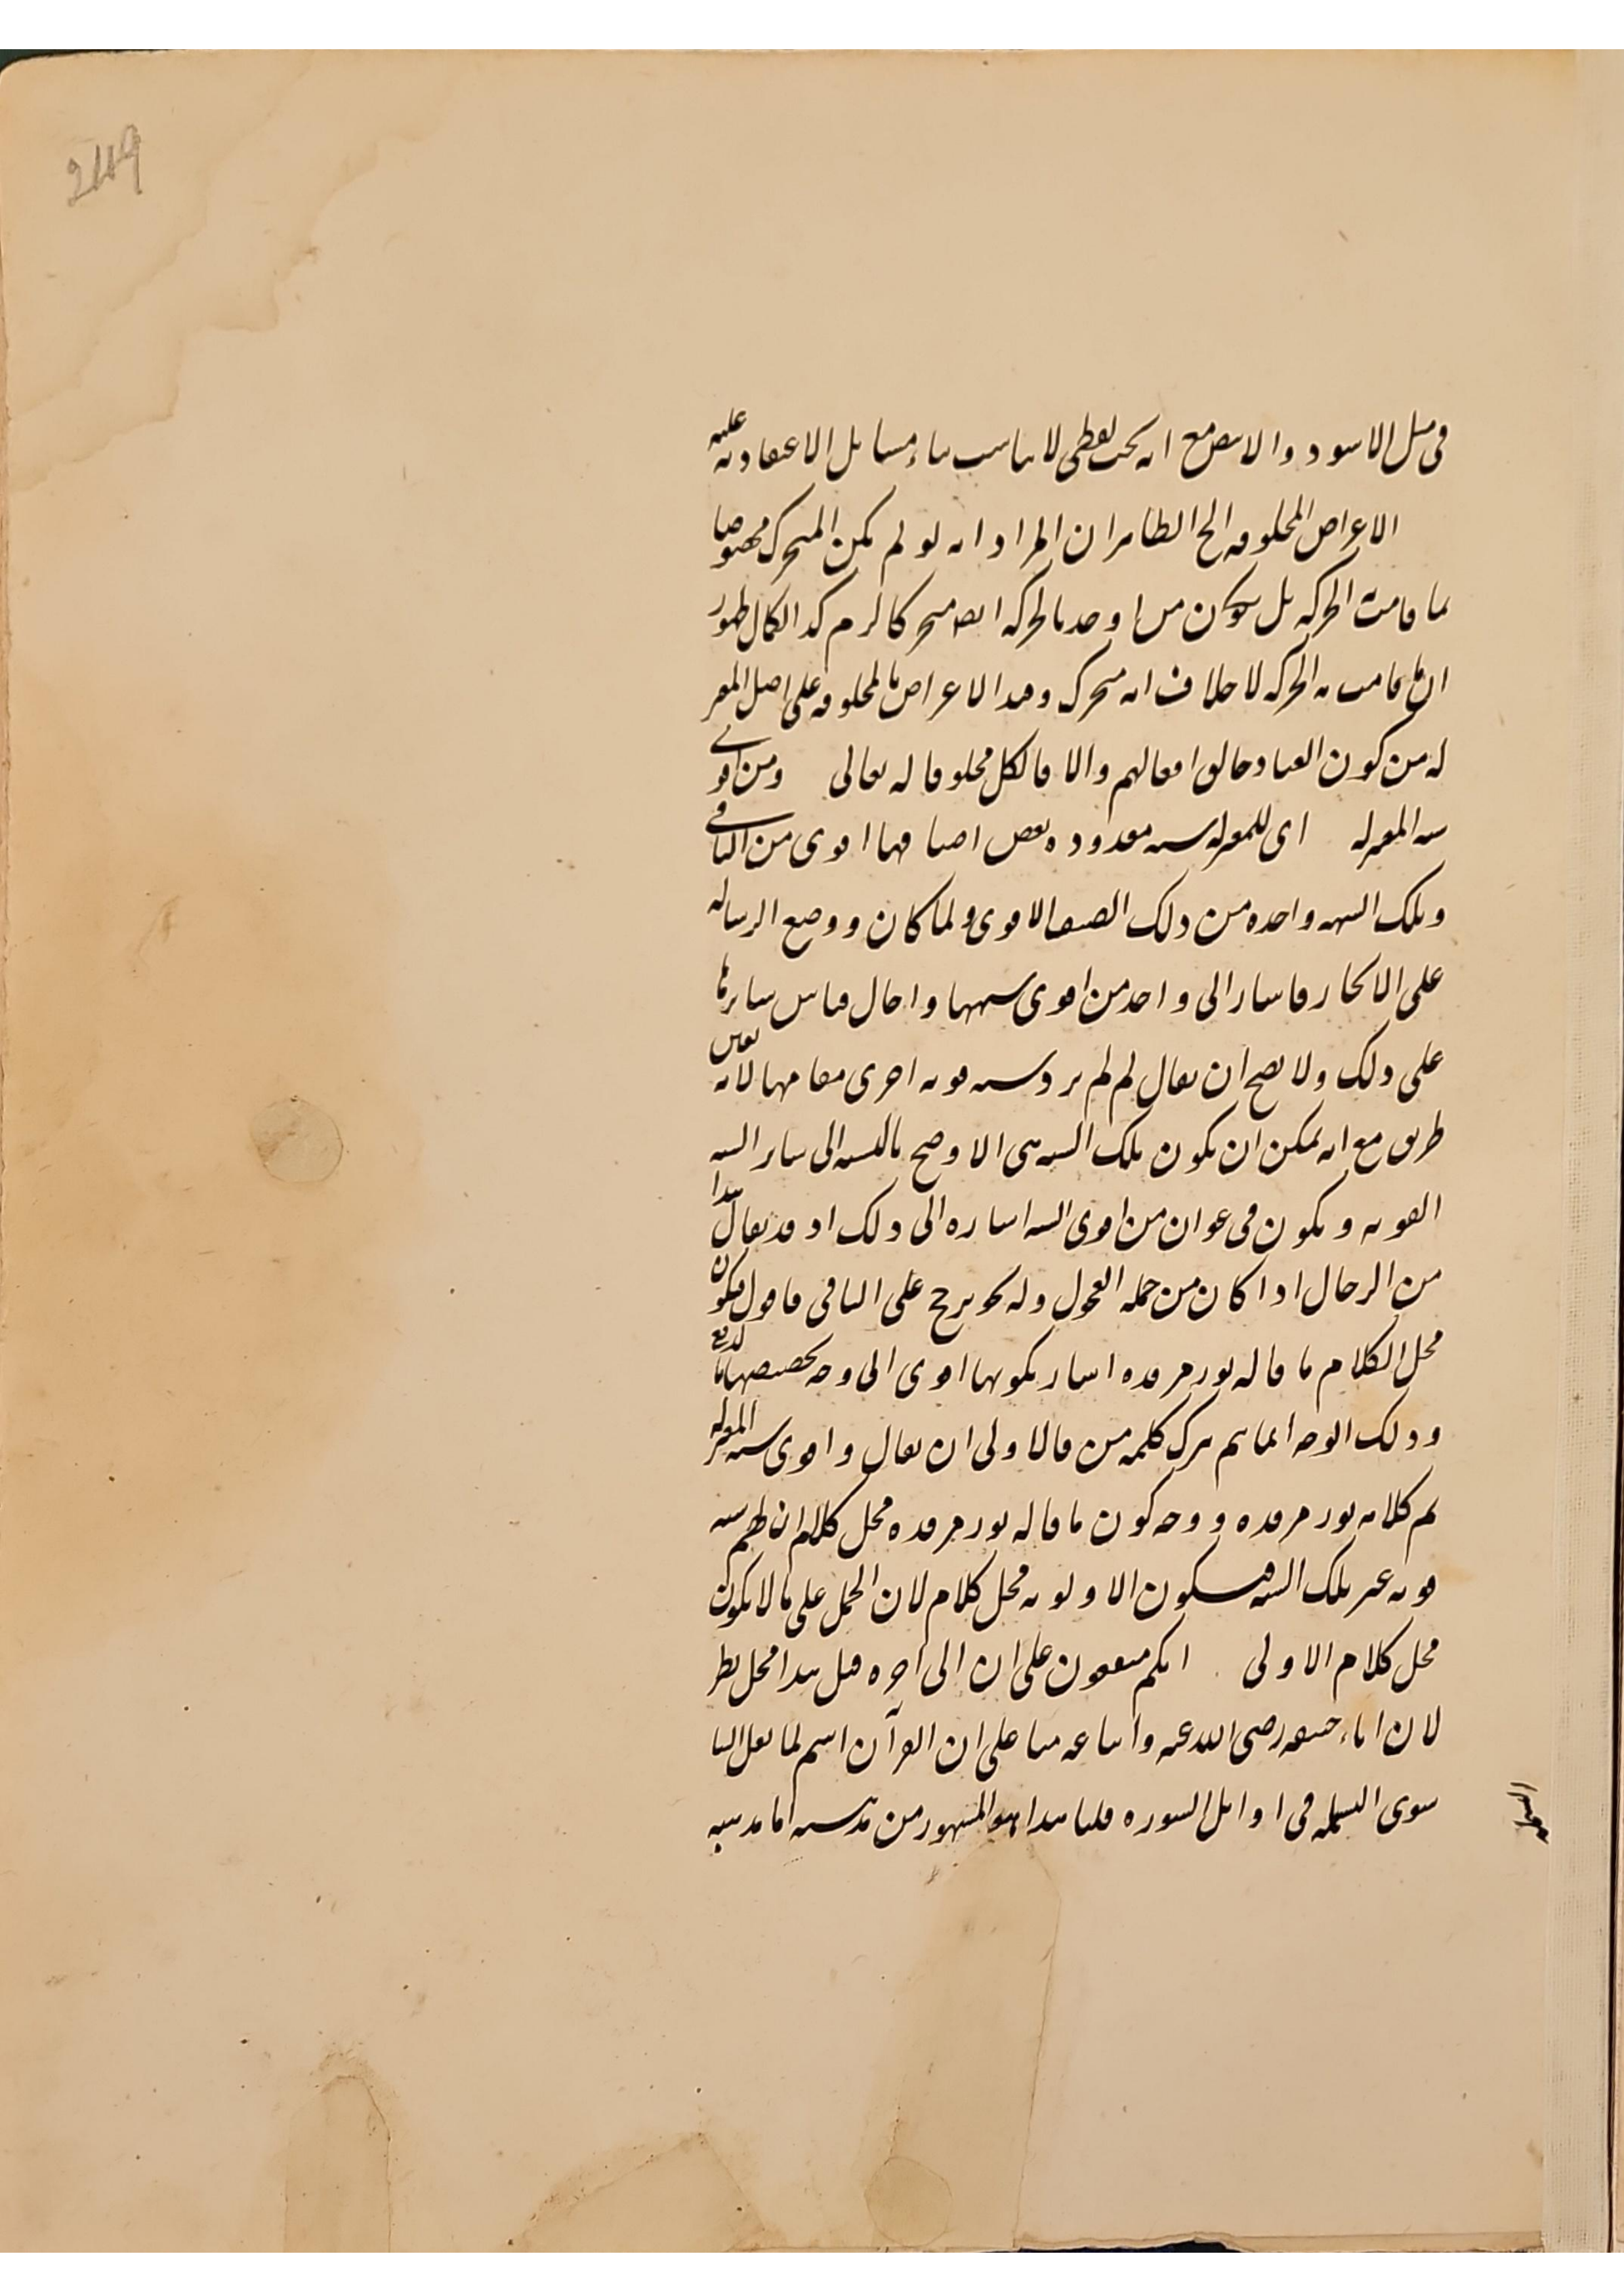 249
في مثل الاسود والابيض مع انه بحث لفظي لا يناسب بناء مسايل الاعتقادية عليه
الاعراض المخلوقة الخ الظاهر ان المراد انه لو لم يكن المتحرك مخصوصا
بما قامت الحركة بل يكون من اوجد الحركة ايضا متحركا لزم كذا لكمال ظهور
ان ما قامت به الحركة لا خلاف انه متحرك وقيد الاعراض بالمخلوقة على اصل المعتز
له من كون العباد خالق افعالهم والا فالكل مخلوقا له تعالى ومن اقوى
شبه المعتزله اى للمعتزلة شبه معدودة بعض اصنافها اقوى من الباقي
وتلك الشبهه واحده من ذلك الصنف الاقوى ولما كان ووضع الرساله
على الايجاز فاشار الى واحد من اقوى شبهها واحال قياس سايرها
على ذلك ولا يصح ان يقال لم لم يرد شبه قويه اخرى مقامها لانه تعيين
طريق مع انه يمكن ان يكون تلك الشبه هى الاوضح بالنسبه الى ساير الشبه
القويه ويكون فى عنوان من اقوى الشبه اشاره الى ذلك اذ قد يقال هذا
من الرجال اذا كان من جمله الفحول وله نحو ترجح على الباقى فاقول فيكون
محل الكلام ما قاله نور مرقده اشار بكونها اقوى الى وجه تخصيصها بالدفع
وذلك الوجه انما يتم بترك كلمه من فالاولى ان يقال واقوى شبه المعتزله
تم كلامه نور مرقده ووجه كون ما قاله نور مرقده محل كلام ان لهم شبه
قويه غير تلك الشبه فيكون الاولويه محل كلام لان الحمل على ما لا يكون
محل كلام الاولى انكم متفقون على ان الى اخره قيل هذا محل نظر
لان ابا حنيفه رضى الله عنه واتباعه منا على ان القرآن اسم لما نقل الينا
سوى البسمله فى اوايل السوره قلنا هذا هو المشهور من مذهبه اما مذهبه